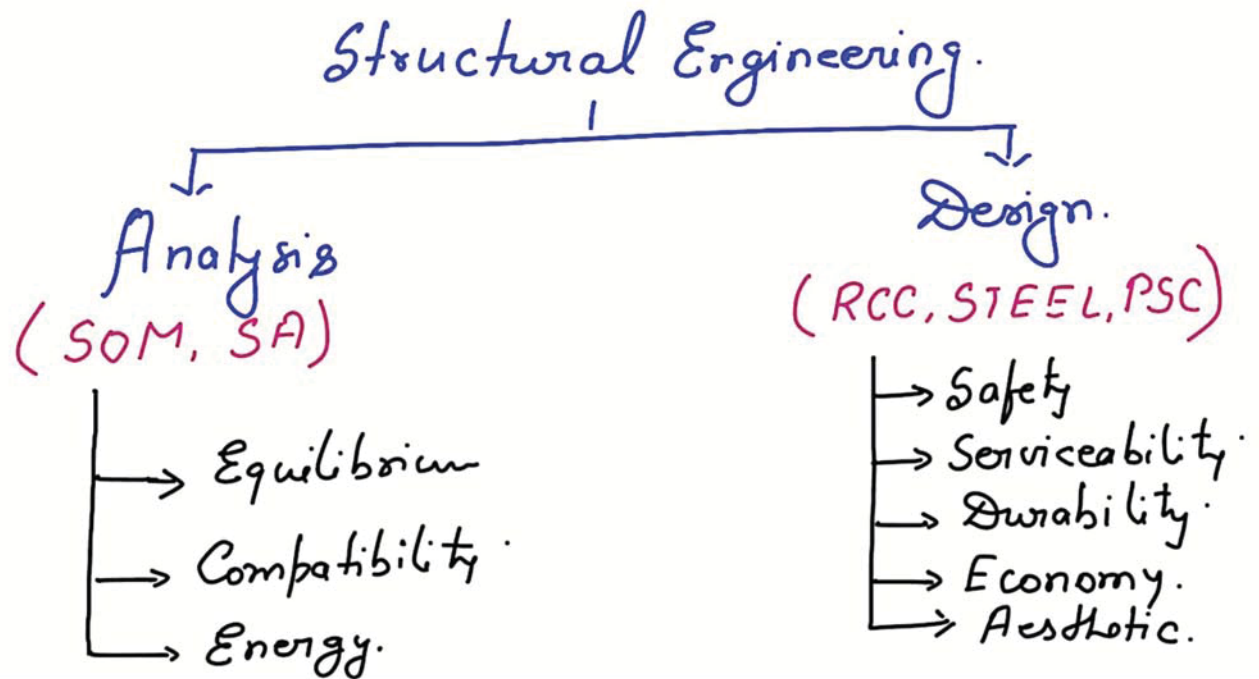 Structural Engineering.
Analysis
(SOM, SA)
Equilibrium
Compatibility.
Energy.
Design.
(RCC, STEEL, PSC)
Safety
Serviceability.
Durability.
Economy.
Aesthetic.